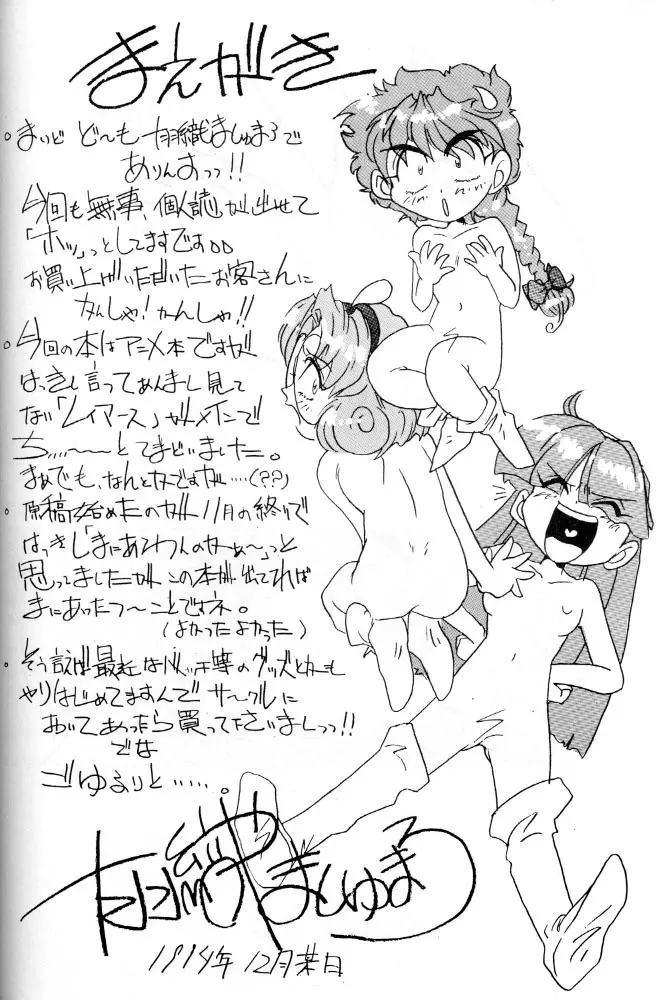 まえがき
・まいど ど〜も 羽織ましゅまろで
ありんすっっ!!
今回も無事、個人誌が出せて
「ホッ」っとしてますです。。
お買い上げいただいたお客さんに
かんしゃ!かんしゃ!!
・今回の本はアニメ本ですが
はっきし言ってあんまし見て
ない「レイアース」がメインで
ち……〜〜とてまどいました。
まぁでも、なんとかですが……(??)
・原稿始めたのが11月の終りで
はっきし「まにあわんのかぁ〜っっと
思ってましたがこの本が出てれば
まにあったつ〜ことですネ。
(よかったよかった)
・そう言えば最近はバッチ等のグッズとかも
やりはじめてますんでサークルに
おいてあったら買って下さいましっっ!!
でな
ごゆるりと……。
ましゅまろ
1994年12月某日